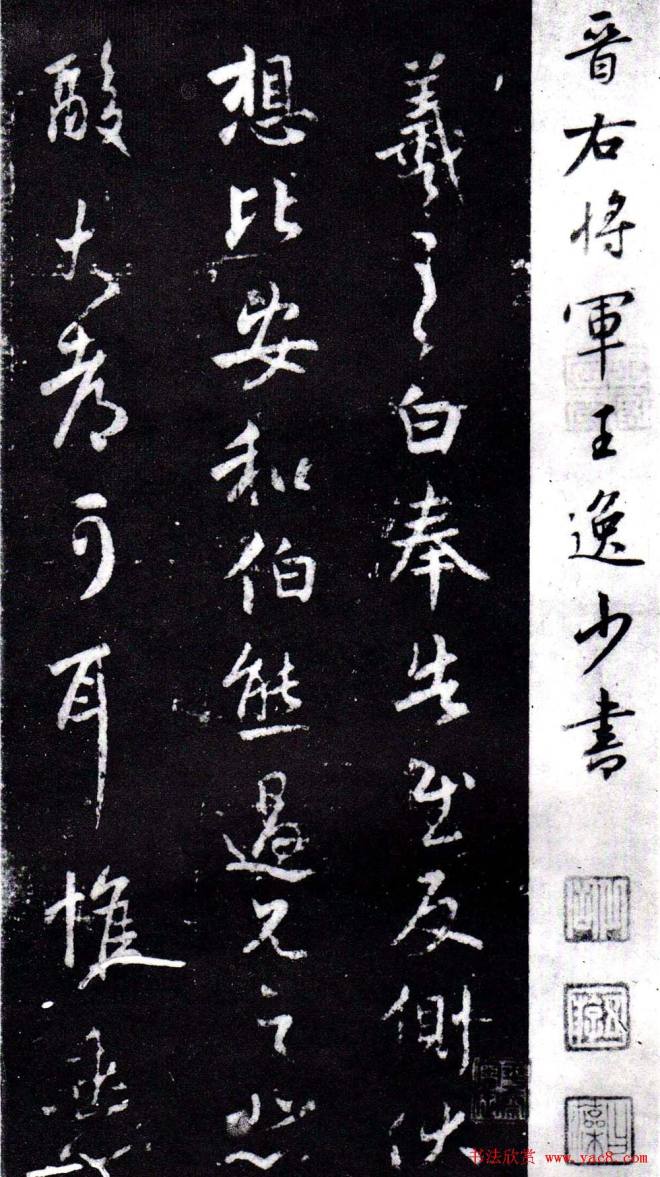 晋右将軍王逸少書
羲之白奉告至反側伏
想比安和伯熊過兄之悲
酸大者可耳惟
书法欣赏 www.yac8.com